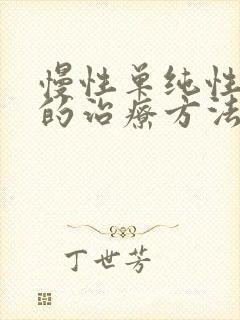 慢性单纯性
的治疗方法
丁世芳